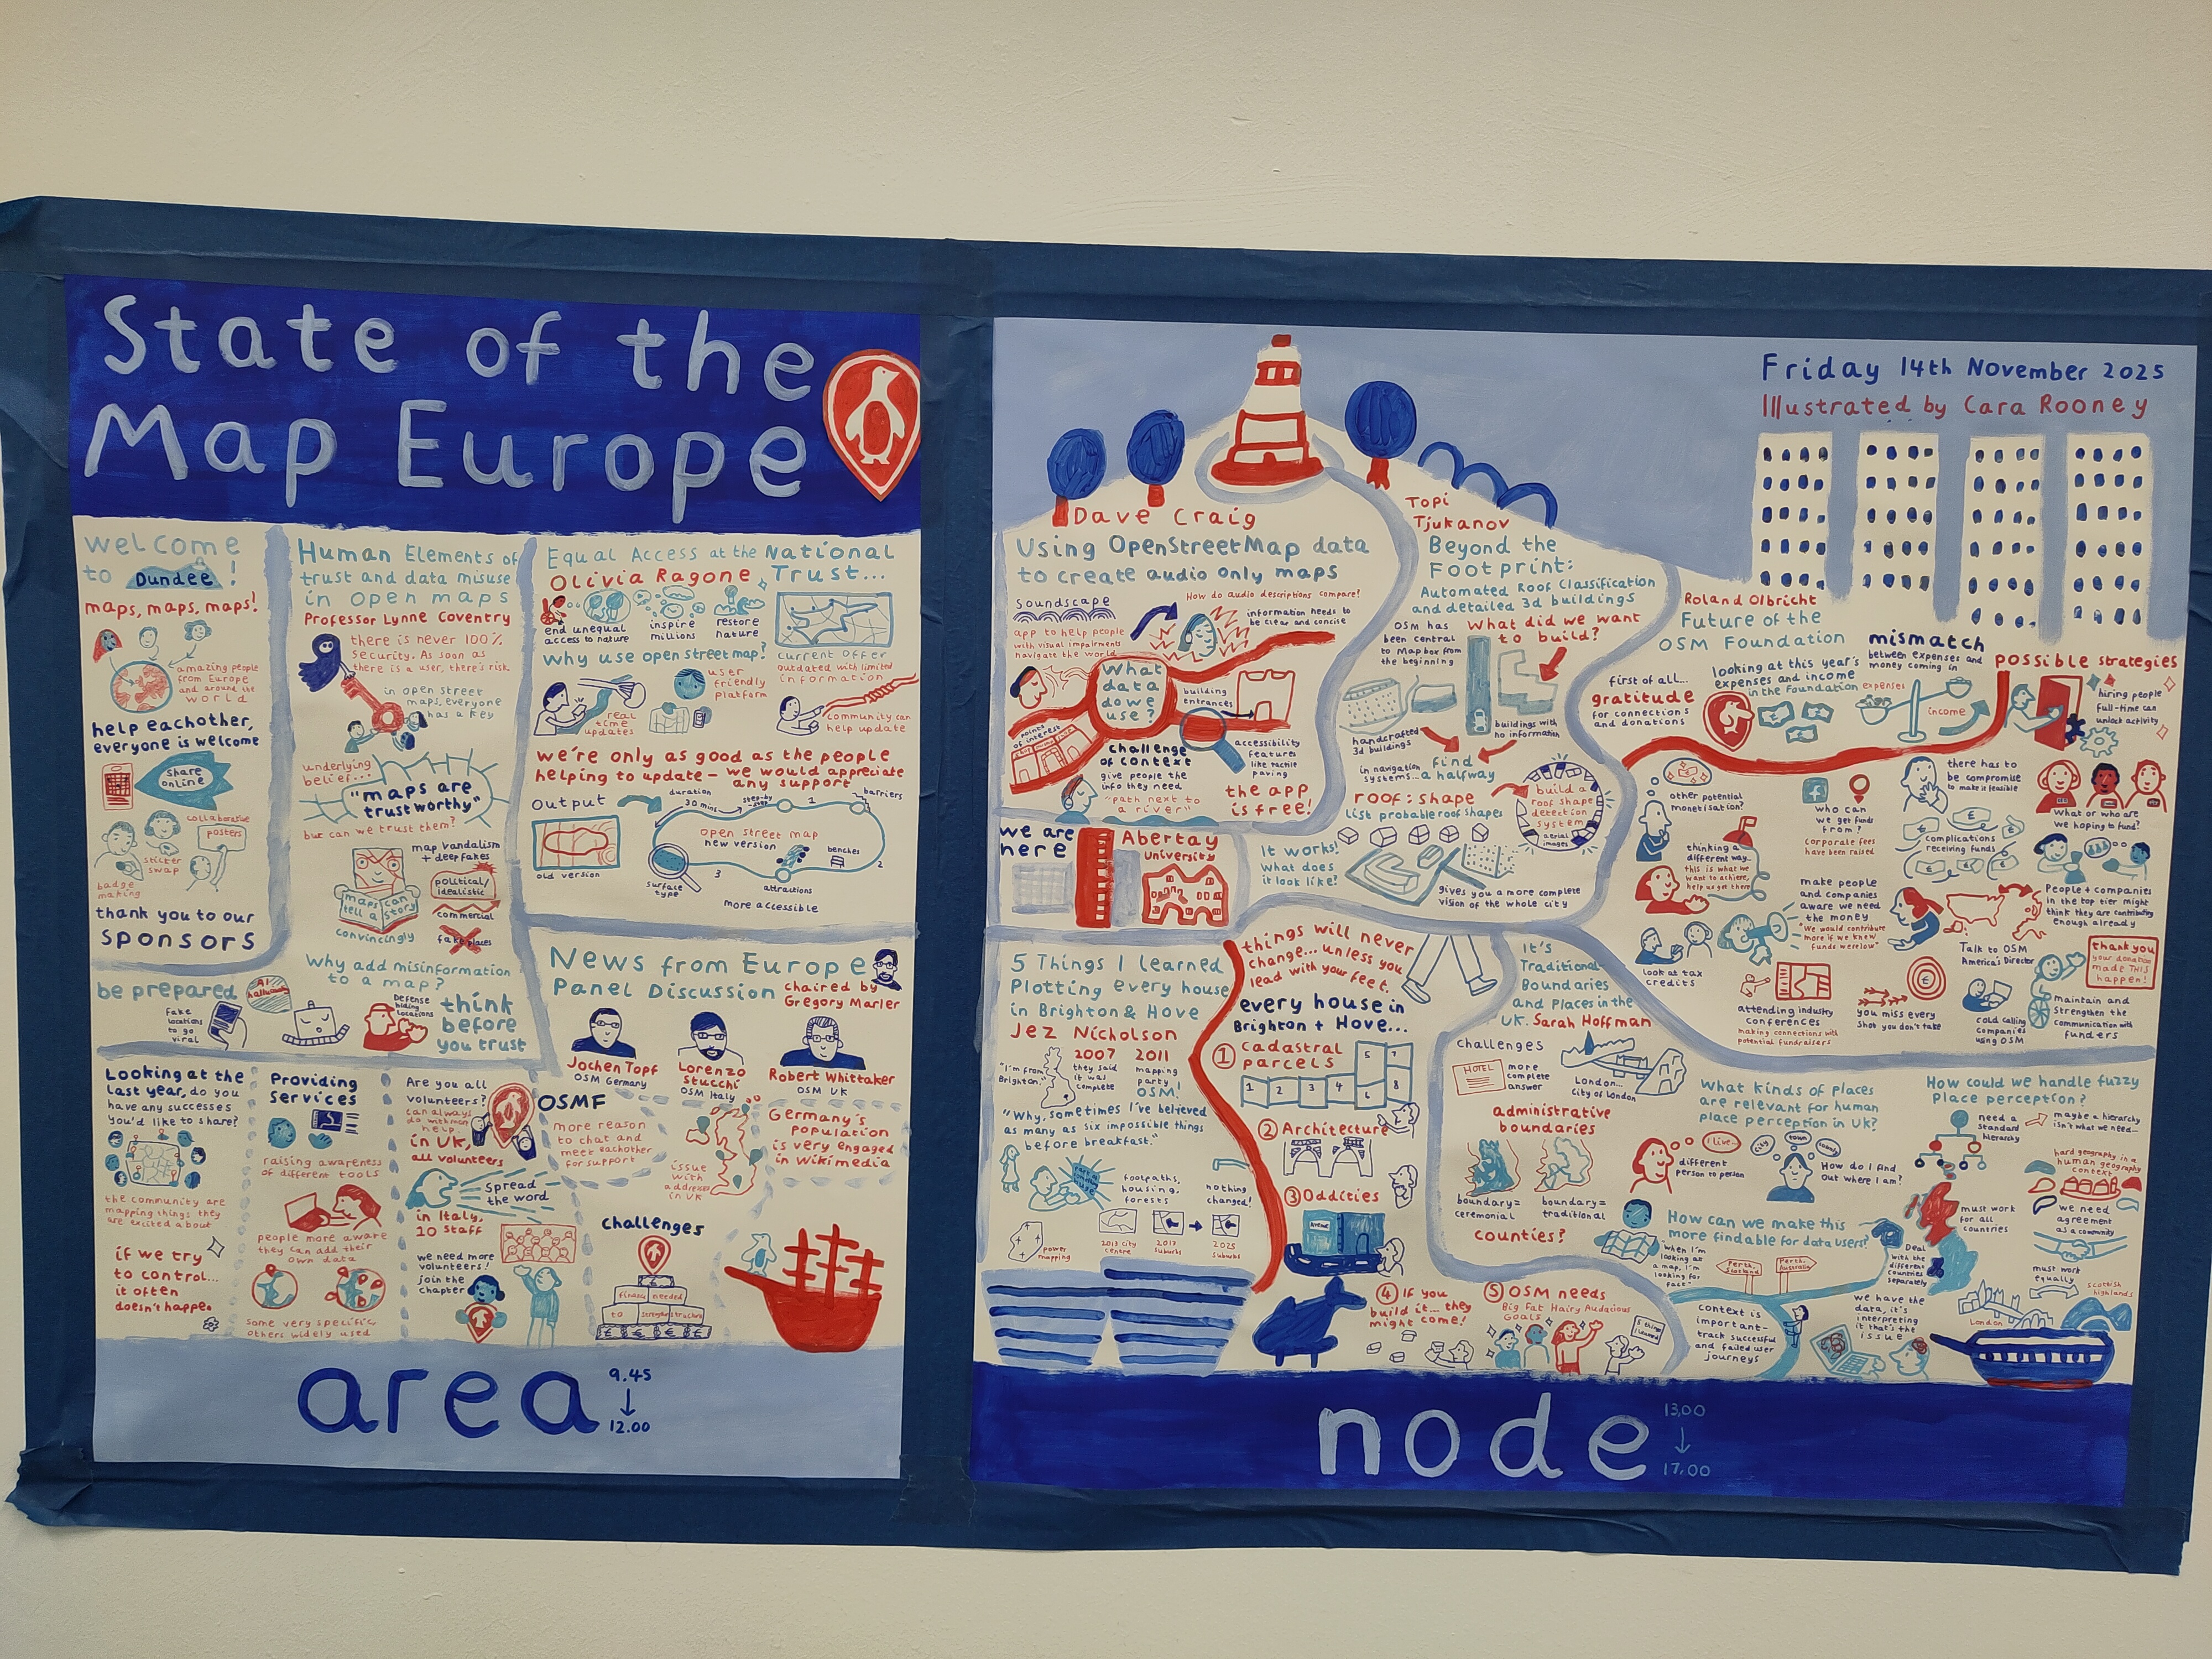 State of the
Map Europe
welcome
to Dundee!
maps, maps, maps!
amazing people
from Europe
and around the
world
help eachother,
everyone is welcome
share
online
collaborative
posters
sticker
swap
badge
making
thank you to our
sponsors
Human Elements of
trust and data misuse
in open maps
Professor Lynne Coventry
there is never 100%
security. As soon as
there is a user, there's risk
in open street
maps, everyone
has a key
underlying
belief...
"maps are
trustworthy"
but can we trust them?
map vandalism
+ deepfakes
political/
idealistic
commercial
fake places
maps can
tell a story
convincingly
Why add misinformation
to a map?
be prepared
AI
fake
locations
to go
viral
Defense
hiding
locations
think
before
you trust
Equal Access at the National
Trust...
Olivia Ragone
end unequal
access to nature
inspire
millions
restore
nature
current offer
outdated with limited
information
why use open street map?
real
time
updates
user
friendly
platform
community can
help update
we're only as good as the people
helping to update - we would appreciate
any support
output
duration
30 mins
step-by-step
1
barriers
open street map
new version
benches
2
3
old version
surface
type
attractions
more accessible
News from Europe
Panel Discussion
chaired by
Gregory Marler
Jochen Topf
OSM Germany
Lorenzo
Stucchi
OSM Italy
Robert Whittaker
OSM UK
Looking at the
last year, do you
have any successes
you'd like to share?
the community are
mapping things they
are excited about
if we try
to control...
it often
doesn't happen
Providing
services
raising awareness
of different tools
people more aware
they can add their
own data
some very specific,
others widely used
Are you all
volunteers?
can always
do with more
help.
in UK,
all volunteers
Spread
the word
in Italy,
10 staff
we need more
volunteers!
join the
chapter
OSMF
more reason
to chat and
meet eachother
for support
issue
with
addresses
in UK
Germany's
population
is very engaged
in Wikimedia
challenges
finance needed
to strengthen structure
area
9.45
↓
12.00
Friday 14th November 2025
Illustrated by Cara Rooney
Dave Craig
Using OpenStreetMap data
to create audio only maps
Soundscape
app to help people
with visual impairments
navigate the world
How do audio descriptions compare!
information needs to
be clear and concise
What
data
do we
use?
points
of interest
building
entrances
challenge
of context
give people the
info they need
"path next to
a river"
accessibility
features
like tactile
paving
the app
is free!
we are
here
Abertay
University
Topi
Tjukanov
Beyond the
Footprint:
Automated Roof Classification
and detailed 3d buildings
OSM has
been central
to Mapbox from
the beginning
What did we want
to build?
handcrafted
3d buildings
buildings with
no information
in navigation
systems...
find
a halfway
roof: shape
List probable roof shapes
build a
roof shape
detection
system
aerial
images
It works!
What does
it look like?
gives you a more complete
vision of the whole city
Roland Olbricht
Future of the
OSM Foundation
first of all...
gratitude
for connections
and donations
looking at this year's
expenses and income
in the Foundation
mismatch
between expenses and
money coming in
expenses
income
possible strategies
hiring people
full-time can
unlock activity
other potential
monetisation?
who can
we get funds
from?
corporate fees
have been raised
there has to
be compromise
to make it feasible
complications
receiving funds
What or who are
we hoping to fund?
thinking a
different way...
this is what we
want to achieve,
help us get there
make people
and companies
aware we need
the money
"We would contribute
more if we knew
funds were low"
People + companies
in the top tier might
think they are contributing
enough already
look at tax
credits
attending industry
conferences
making connections with
potential fundraisers
you miss every
shot you don't take
Talk to OSM
America's Director
cold calling
companies
using OSM
thank you
your donation
made THIS
happen!
maintain and
strengthen the
communication with
funders
5 Things I learned
Plotting every house
in Brighton & Hove
Jez Nicholson
"I'm from
Brighton"
2007
they said
it was
complete
2011
mapping
party!
OSM
"Why, sometimes I've believed
as many as six impossible things
before breakfast."
footpaths,
housing,
forests
nothing
changed!
power
mapping
2013 city
centre
2013
suburbs
2025
suburbs
things will never
change... unless you
lead with your feet.
every house in
Brighton + Hove...
① Cadastral
parcels
1 2 3 4 5 6 7 8
② Architecture
③ Oddities
④ If you
build it... they
might come!
⑤ OSM needs
Big Fat Hairy Audacious
Goals
5 things
I learned
It's
Traditional:
Boundaries
and Places in the
UK. Sarah Hoffman
challenges
HOTEL
more
complete
answer
London...
City of London
administrative
boundaries
boundary=
ceremonial
boundary=
traditional
counties?
What kinds of places
are relevant for human
place perception in UK?
I live...
city
town
different
person to person
How do I find
out where I am?
How can we make this
more findable for data users?
"when I'm
looking at
a map, I'm
looking for
fact"
Perth,
Scotland
Perth,
Australia
context is
important-
track successful
and failed user
journeys
Deal
with the
different
countries
separately
we have the
data, it's
interpreting
it that's the
issue
How could we handle fuzzy
place perception?
need a
standard
hierarchy
maybe a hierarchy
isn't what we need...
hard geography in a
human geography
context
must work
for all
countries
we need
agreement
as a community
must work
equally
London
scottish
highlands
node
13.00
↓
17.00